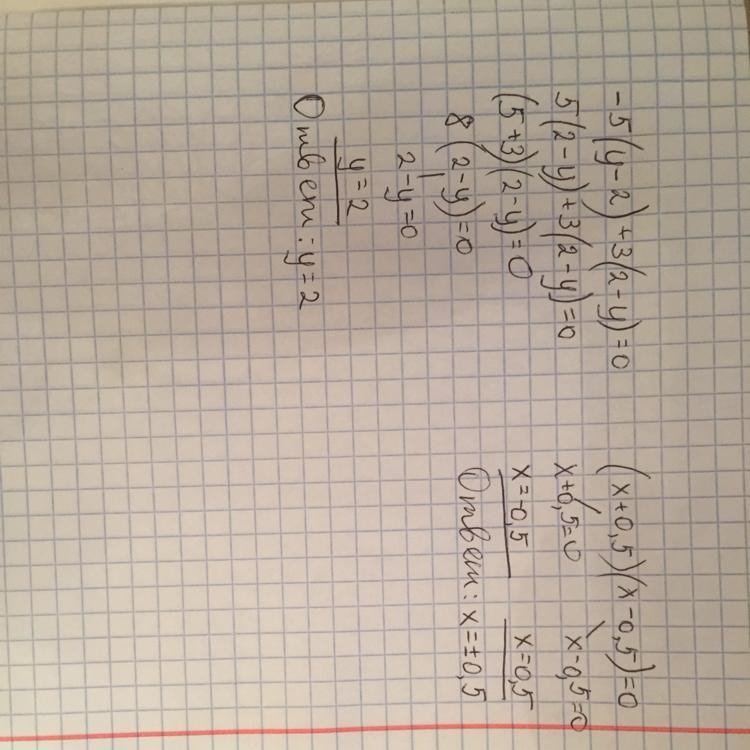 -5(y-2)+3(2-y)=0
5(2-y)+3(2-y)=0
(5+3)(2-y)=0
8(2-y)=0
2-y=0
y=2
Ответ: y=2
(x+0,5)(x-0,5)=0
x+0,5=0 x-0,5=0
x=-0,5 x=0,5
Ответ: x=±0,5